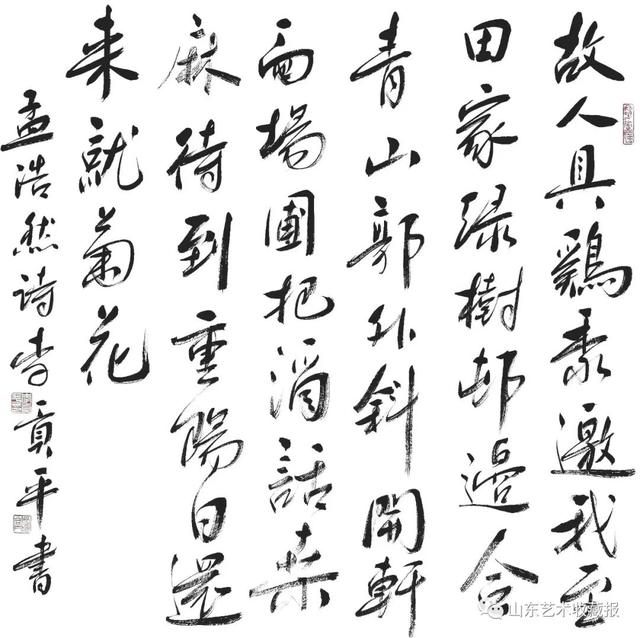 故人具鷄黍邀我至
田家綠樹邨邊合
青山郭外斜開軒
面場圃把酒話桑
麻待到重陽日還
来就菊花
孟浩然诗李貢平書
山东艺术收藏报